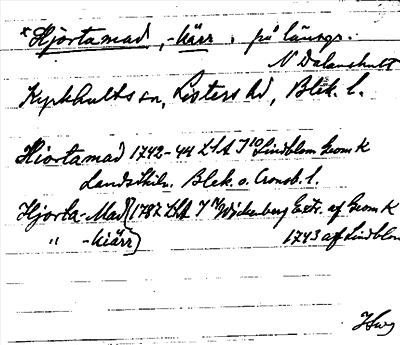 *Hjortamad, -kärr, på länsgr.
N Dalanshult
Kyrkhults sn, Listers hd, Blek. l.
Hiortamad 1742-44 LSA J10 Lindblom Geom K
Landtskiln. Blek. o. Cronob. l.
Hjorta-Mad } 1787 LSA J Wickenberg Extr. af Geom K
" -kiärr } 1743 af Lindblom